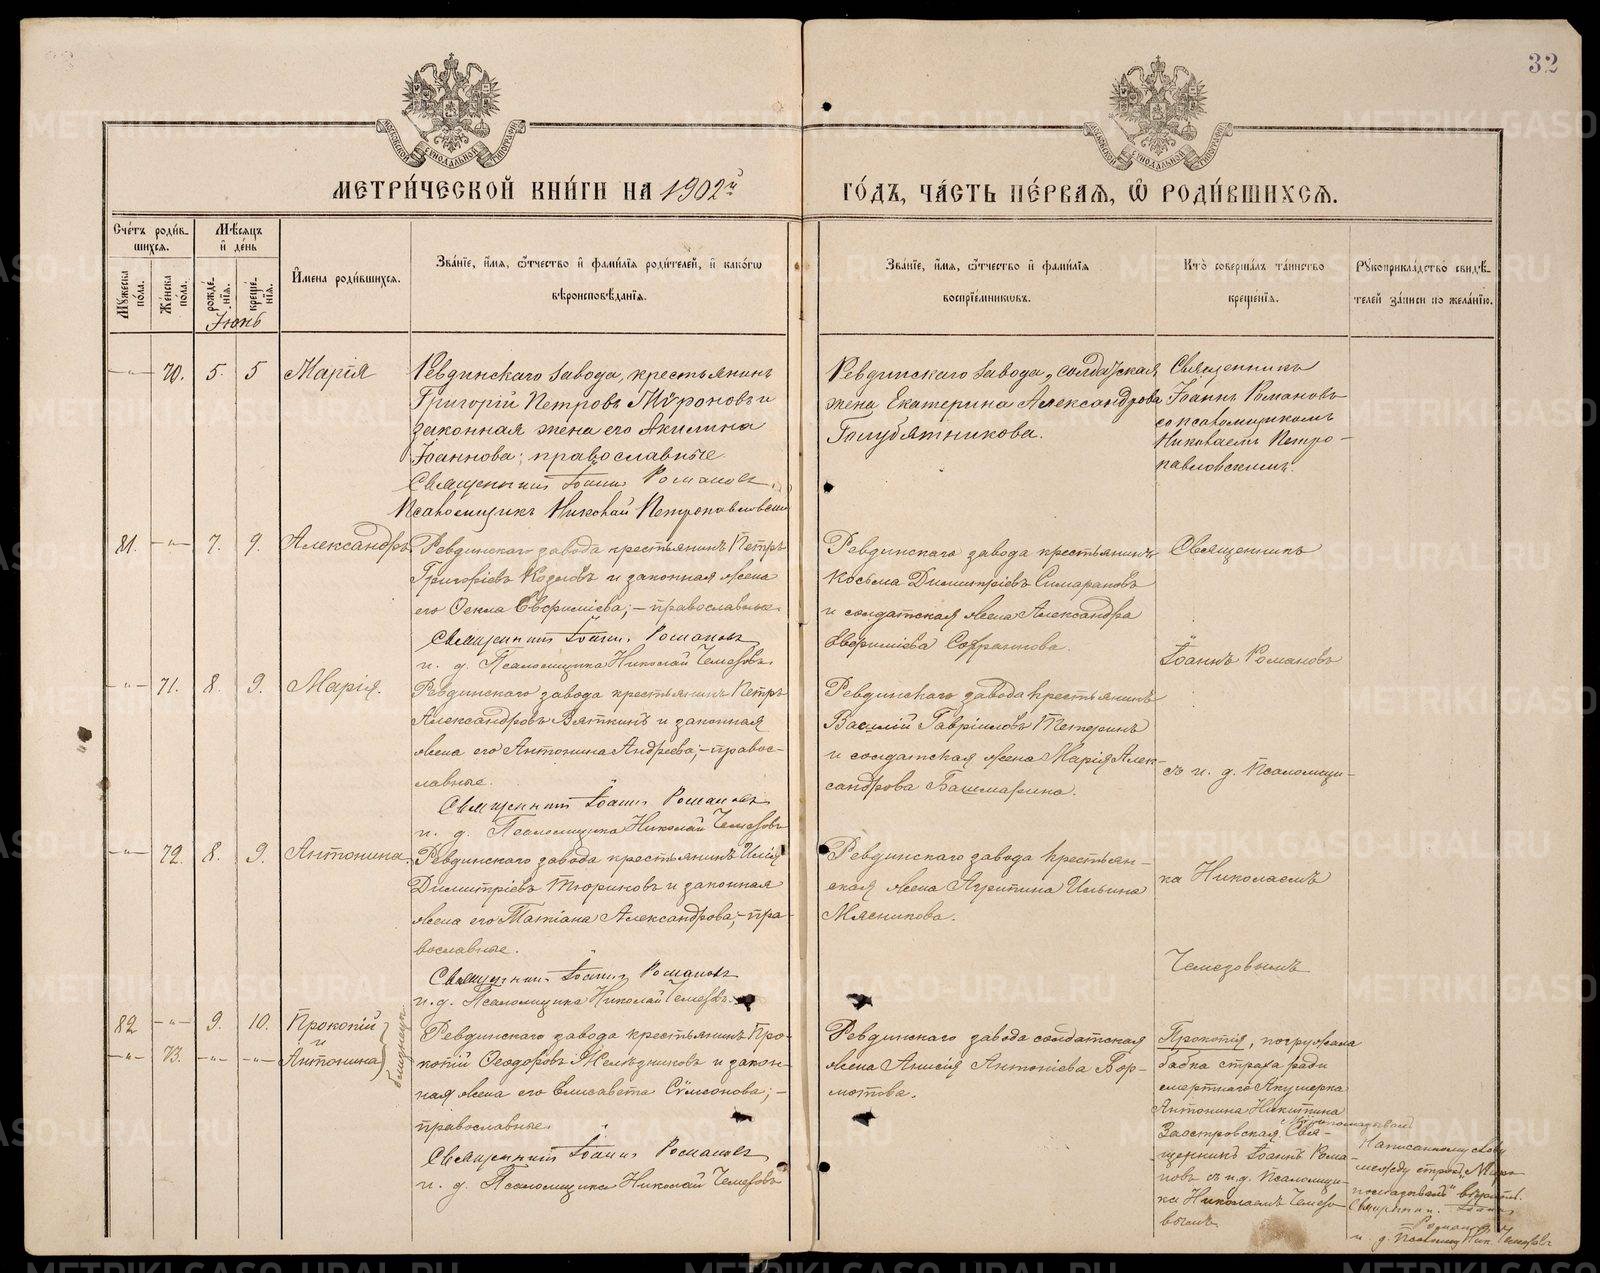 32
МОСКОВСКОЙ СѴНОДАЛЬНОЙ ТИПОГРАФІИ
МОСКОВСКОЙ СѴНОДАЛЬНОЙ ТИПОГРАФІИ
МЕТРИ́ЧЕСКОЙ КНИ́ГИ НА 1902й
ГО́ДЪ, ЧА́СТЬ ПЕ́РВАЯ, Ѡ҆ РОДИ́ВШИХСЯ.
Сче́тъ роди́в-
шихся.
Мѣ́сяцъ
и҆ де́нь
Мꙋ́жеска по́ла.
Же́нска по́ла.
рожде́-нїѧ.
креще́-нїѧ.
И҆мена̀ роди́вшихся.
Зва́нїе, и҆́мѧ, ѻ҆́тчество и҆ фами́лїѧ роди́телей, и҆ како́гѡ
вѣроисповѣ́данїѧ.
Зва́нїе, и҆́мѧ, ѻ҆́тчество и҆ фами́лїѧ
воспрїе́мникѡвъ.
Кто̀ соверша́лъ та́инство
креще́нїѧ.
Рꙋкоприкла́дство свидѣ́-
телей за́писи по жела́нїю.
Іюнь
—"— 70. 5. 5 Марія
Ревдинскаго завода, крестьянинъ
Григорій Петровъ Мѵроновъ и
законная жена его Акилина
Іоаннова; православные
Священникъ Іоаннъ Романовъ
Псаломщикъ Николай Петропавловскій
Ревдинскаго завода, солдатская
жена Екатерина Александрова
Голубятникова.
Священникъ
Іоаннъ Романовъ
со псаломщикомъ
Николаемъ Петро-
павловскимъ.
81. —"— 7. 9. Александръ.
Ревдинскаго завода крестьянинъ Петръ
Григоріевъ Козловъ и законная жена
его Ѳекла Евѳиміева; — православные.
Священникъ Іоаннъ Романовъ
и. д. Псаломщика Николай Чемезовъ
Ревдинскаго завода крестьянинъ
Косьма Димитріевъ
и солдатская жена Александра
Евѳиміева
Священникъ
Іоаннъ Романовъ
—"— 71. 8. 9. Марія.
Ревдинскаго завода крестьянинъ Петръ
Александровъ Вяткинъ и законная
жена его Антонина Андреева; — правос-
лавные.
Священникъ Іоаннъ Романовъ
и. д. Псаломщика Николай Чемезовъ
Ревдинскаго завода крестьянинъ
Василій Гавріиловъ
и солдатская жена Марія Алек-
сандрова Башмарина.
съ и. д. Псаломщи-
—"— 72. 8. 9. Антонина.
Ревдинскаго завода крестьянинъ Илія
Димитріевъ Тюриковъ и законная
жена его Татіана Александрова; — пра-
вославные.
Священникъ Іоаннъ Романовъ
и. д. Псаломщика Николай Чемезовъ
Ревдинскаго завода крестьян-
ская жена Агрипина Ильина
Мясникова.
ка Николаемъ
Чемезовымъ
82 —"— 9. 10. Прокопій
и
—"— 73. —"— —"— Антонина
близнецы
Ревдинскаго завода крестьянинъ Про-
копій Ѳеодоровъ Желѣзниковъ и закон-
ная жена его Елисавета Сѵмеонова; —
православные.
Священникъ Іоаннъ Романовъ
и. д. Псаломщика Николай Чемезовъ
Ревдинскаго завода солдатская
жена Анисія Антоніева Бор-
мотова.
Прокопія, погружала
бабка страха ради
смертнаго Акушерка
Антонина Никитина
Заостровская, Свя-
щенникъ Іоаннъ Рома-
новъ съ и.д. Псаломщи-
ка Николаемъ Чемезо-
вымъ
Написанному сбоку
между строкъ
Священникъ Іоаннъ
Романовъ
и. д. Псаломщ. Ник. Чемезовъ